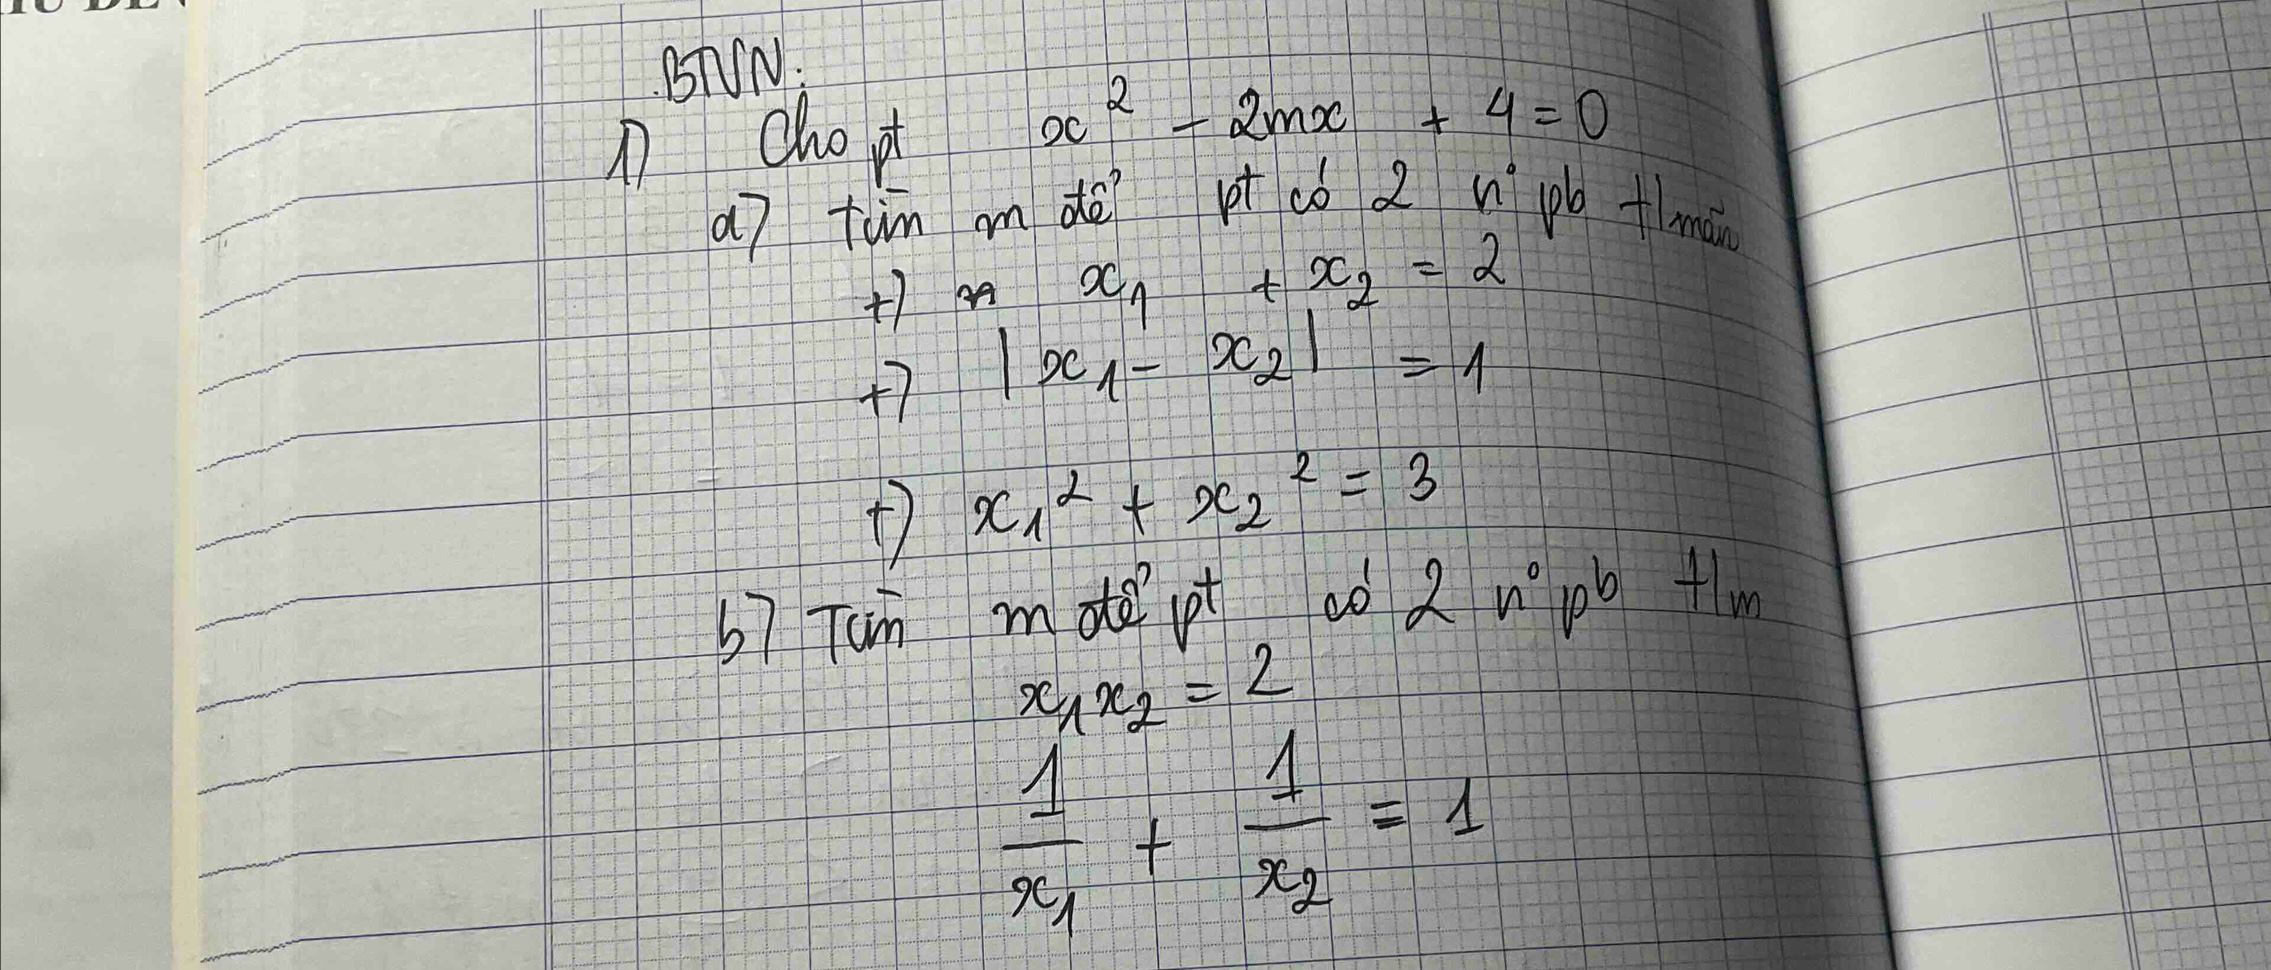 BTVN:
1) Cho pt x² - 2mx + 4 = 0
a) tìm m để pt có 2 n° pb t/mãn
+) x₁ + x₂ = 2
+) |x₁ - x₂| = 1
+) x₁² + x₂² = 3
b) Tìm m để pt có 2 n° pb t/m
x₁x₂ = 2
1/x₁ + 1/x₂ = 1